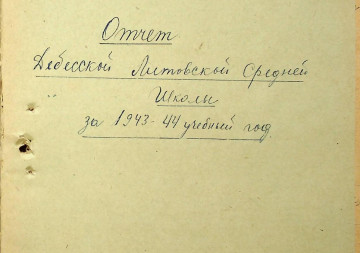 Отчет
Дебесской Литовской Средней
Школы
за 1943-44 учебный год.